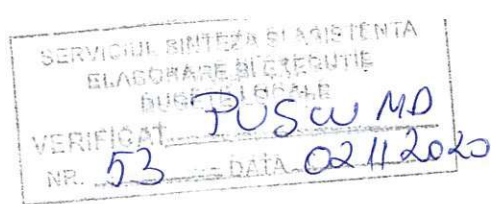 SERVICIUL SINTEZA SI ASISTENTA
ELABORARE SI EXECUTIE
BUGETE LOCALE
VERIFICAT
MD
NR. 53 DATA 02 11 2020